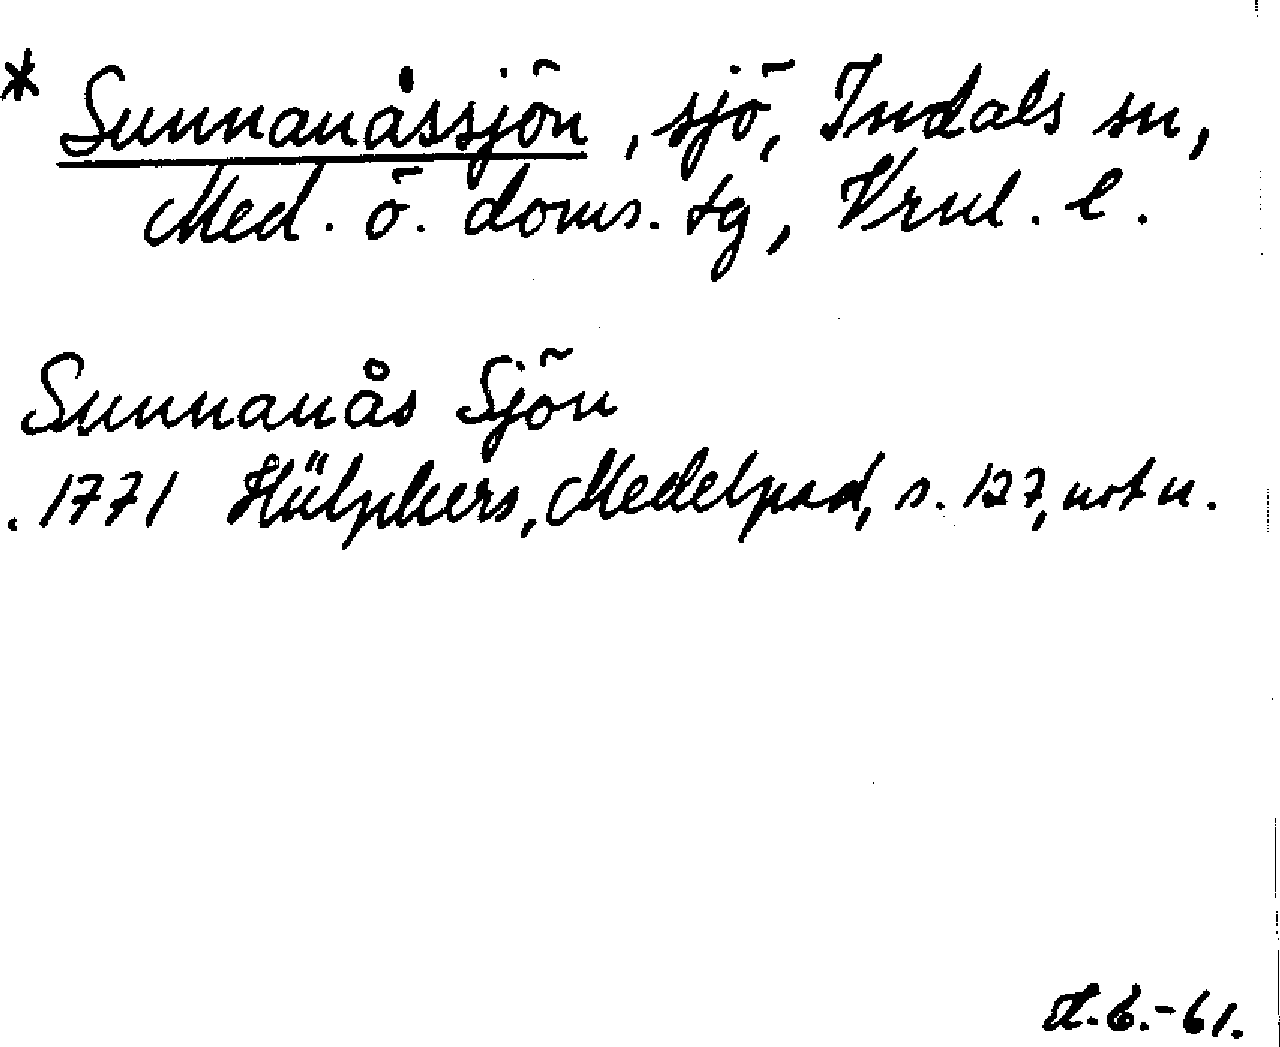 * Sunnanåssjön, sjö, Indals sn,
Med. ö. doms. tg, Vrnl. l.
Sunnanås Sjön
. 1771 Hülphers, Medelpad, s. 127, not u.